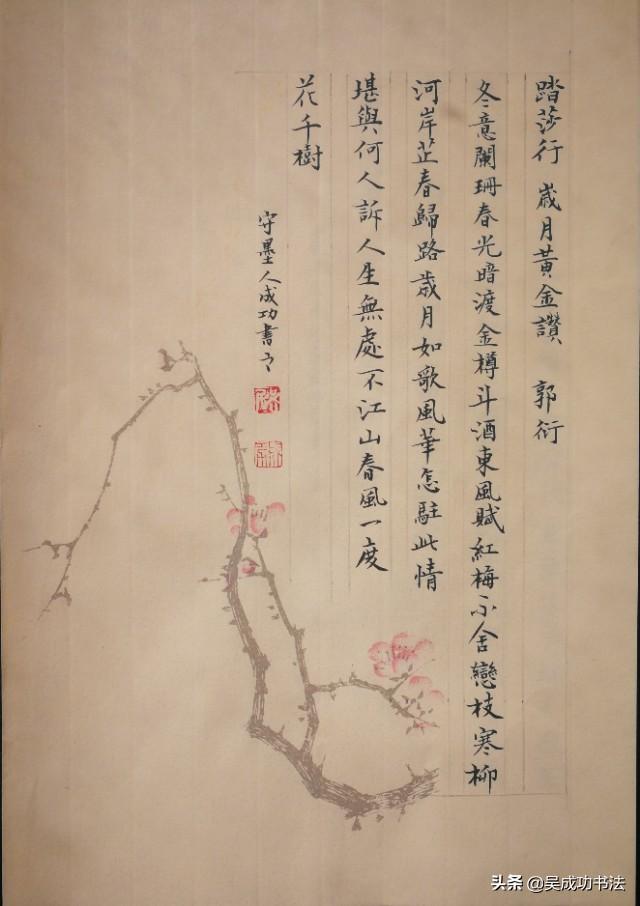 踏莎行 歲月黃金讚 郭衍
冬意闌珊春光暗渡金樽斗酒東風賦紅梅不舍戀枝寒柳
河岸芷春歸路歲月如歌風華怎駐此情
堪與何人訴人生無處不江山春風一度
花千樹
守墨人成功書之
头条 @吴成功书法